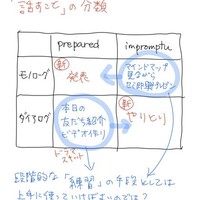 「話すこと」の分類
prepared
impromptu
モノローグ
新
発表
マインドマップ
見ながら
即興
ダイアログ
本日の
友だち紹介
ビデオ作り
新
やりとり
ドラマ
スキット
段階的な"練習"の手段としては
上手に使っていけばよいのでは？